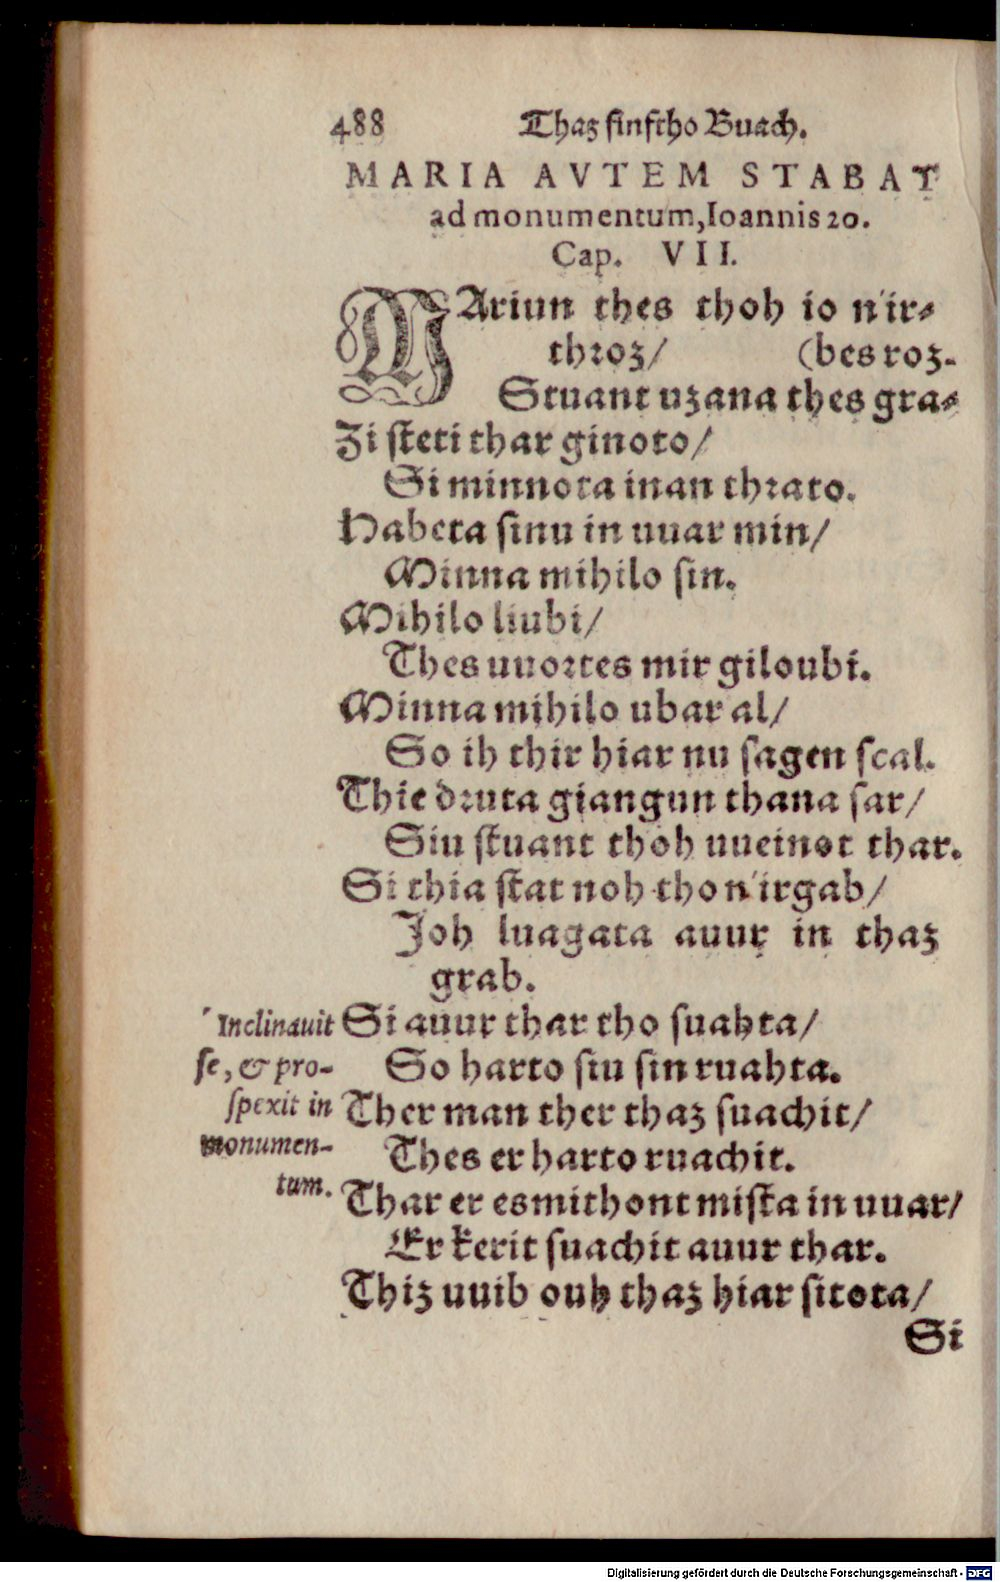 488 Thaz finftho Buach.
MARIA AVTEM STABAT
ad monumentum, Ioannis 20.
Cap. VII.
MAriun thes thoh io n'ir-
throz/ (bes roz.
Stuant uzana thes gra-
Zi steti thar ginoto/
Si minnota inan thrato.
Habeta sinu in uuar min/
Minna mihilo sin.
Mihilo liubi/
Thes uuortes mir giloubi.
Minna mihilo ubar al/
So ih thir hiar nu sagen scal.
Thie druta giangun thana sar/
Siu stuant thoh uueinot thar.
Si thia stat noh tho n'irgab/
Joh luagata auur in thaz
grab.
Si auur thar tho suahta/
So harto siu sin ruahta.
Ther man ther thaz suachit/
Thes er harto ruachit.
Thar er es mithont mista in uuar/
Er kerit suachit auur thar.
Thiz uuib ouh thaz hiar sitota/
Si
Inclinauit
se, & pro-
spexit in
monumen-
tum.
Digitalisierung gefördert durch die Deutsche Forschungsgemeinschaft - DFG